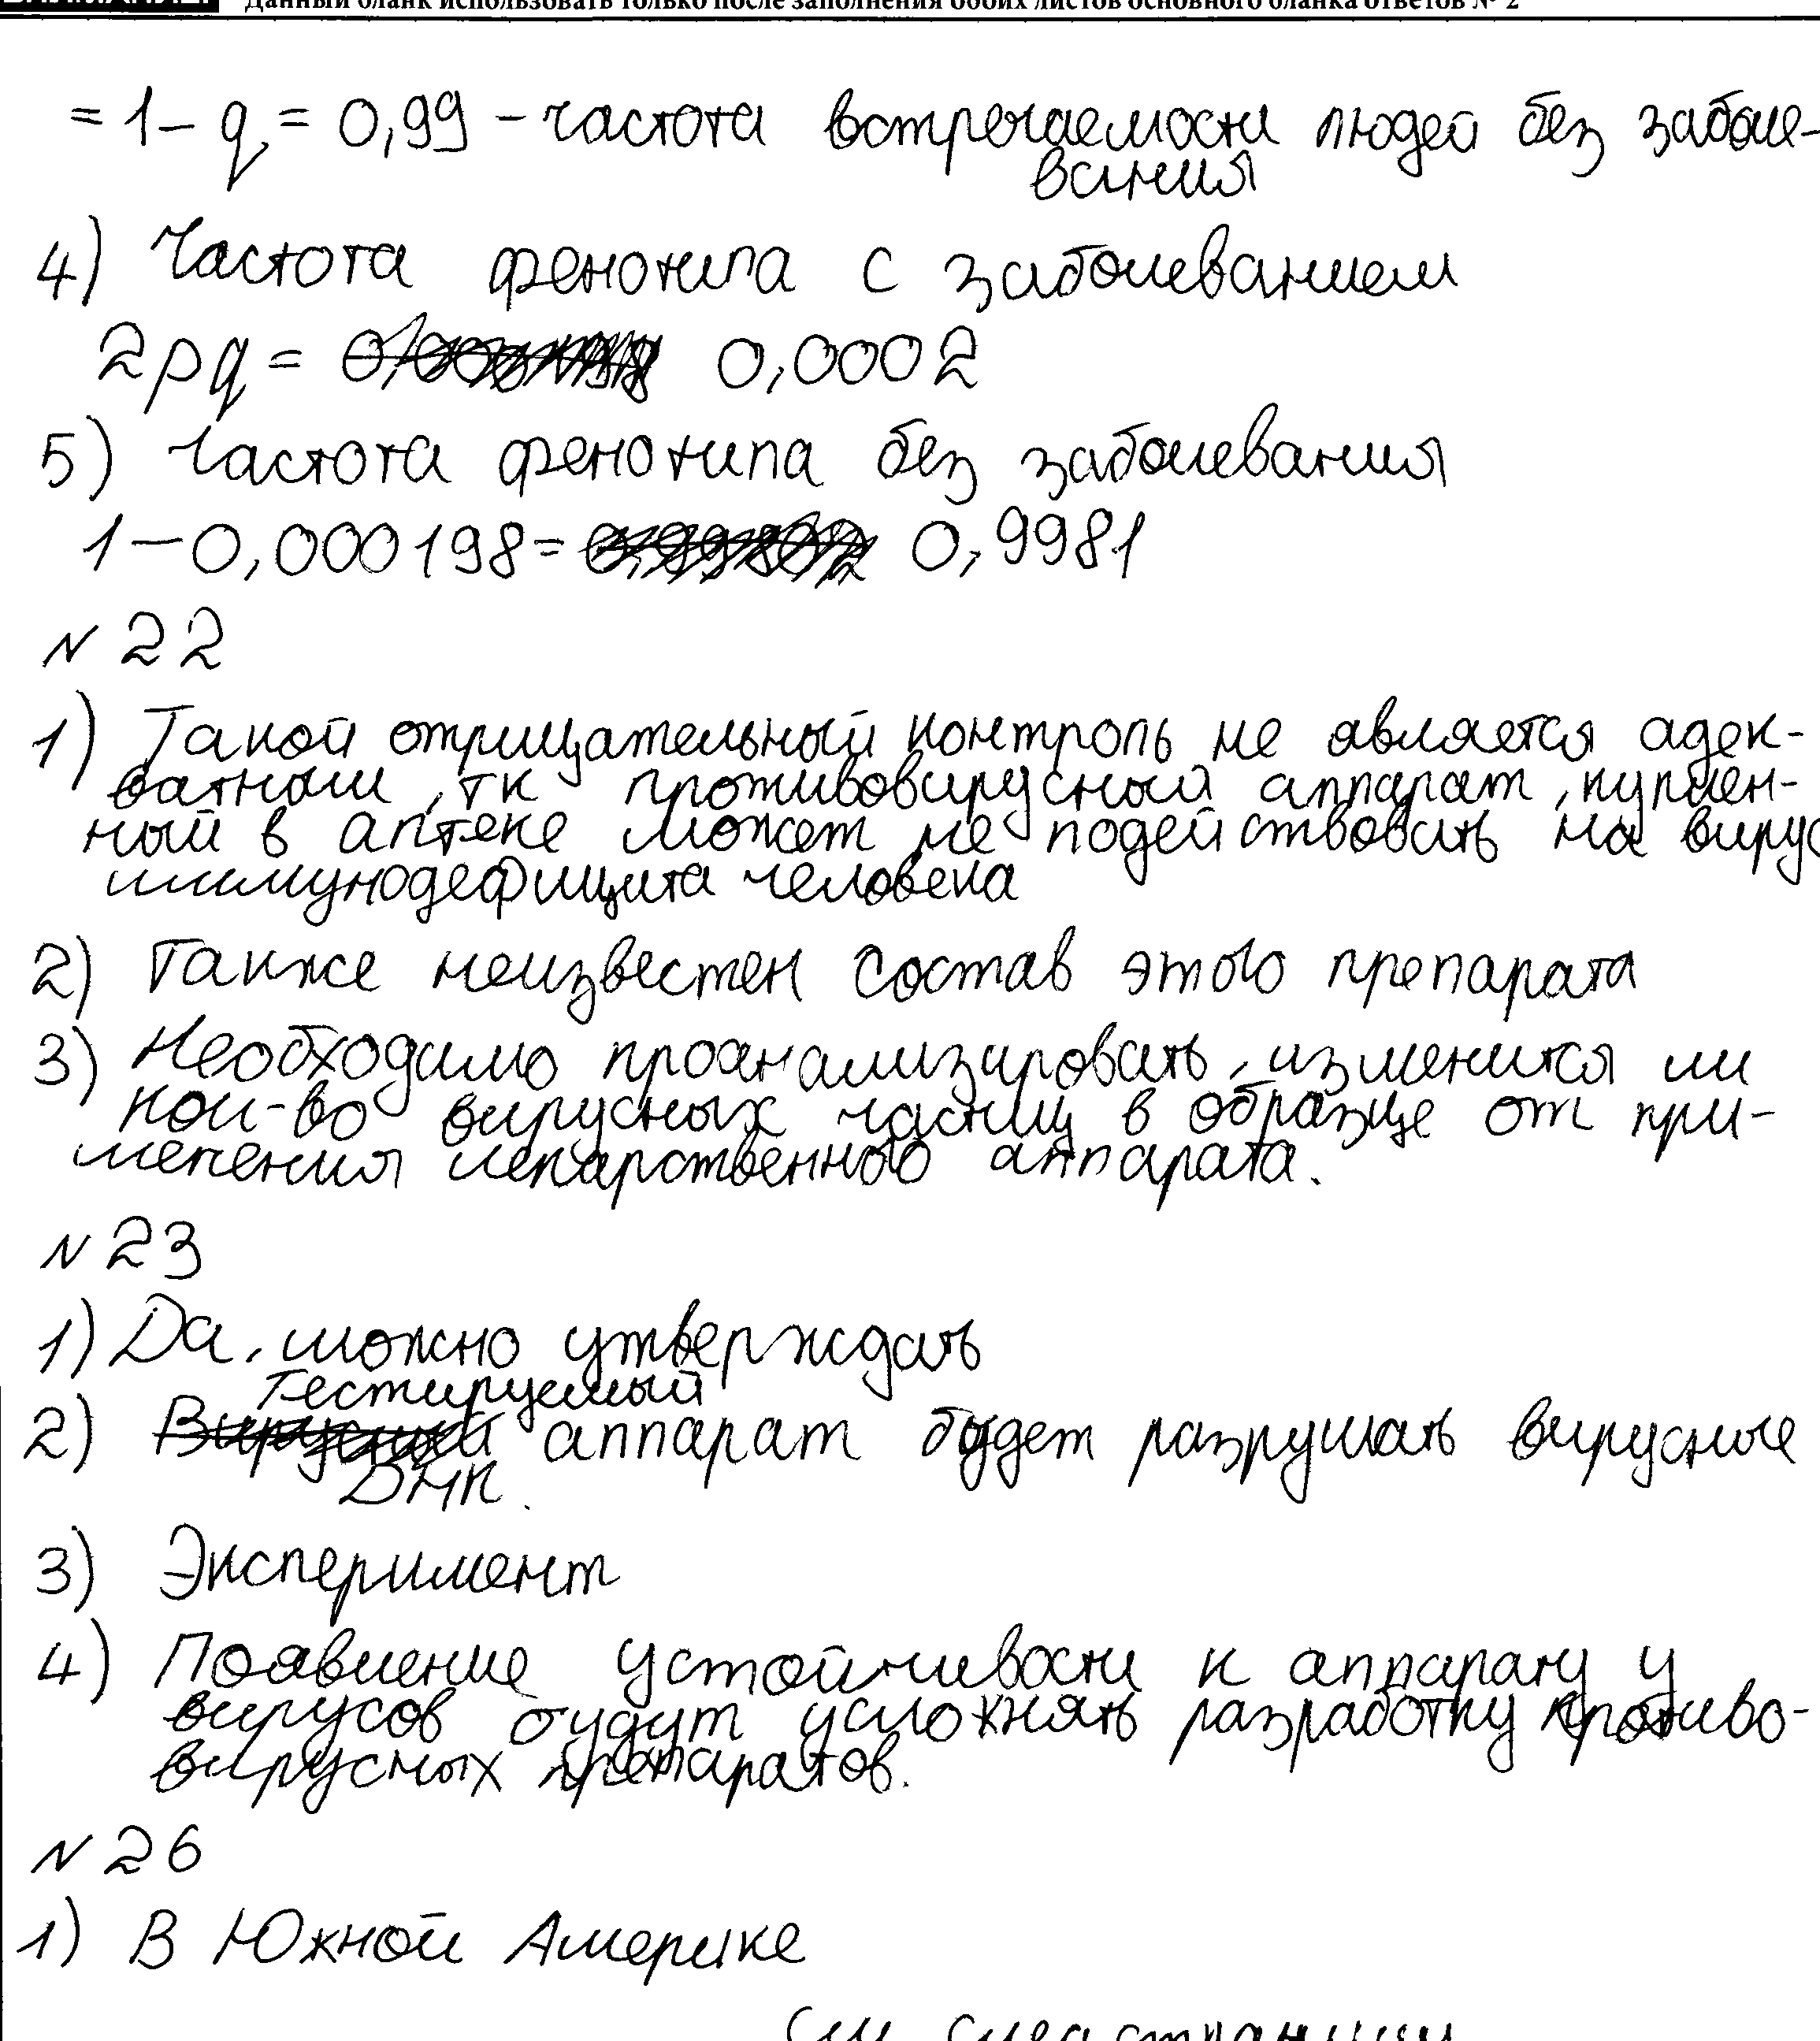 Данный бланк использовать только после заполнения обоих листов основного бланка ответов № 2
= 1 - q = 0,99 - частота встречаемости людей без заболе-
вания
4) Частота фенотипа с заболеванием
2pq = 0,0002
5) Частота фенотипа без заболевания
1 - 0,000198 = 0,9981
N 22
1) Такой отрицательный контроль не является адек-
ватным, тк противовирусный аппарат, куплен-
ный в аптеке может не подействовать на вирус
иммунодефицита человека
2) Также неизвестен состав этого препарата
3) Необходимо проанализировать, изменится ли
кол-во вирусных частиц в образце от при-
менения лекарственного аппарата.
N 23
1) Да, можно утверждать
2) Тестируемый аппарат будет разрушать вирусные
ДНК.
3) Эксперимент
4) Появление устойчивости к аппарату у
вирусов будут усложнять разработку противо-
вирусных препаратов.
N 26
1) В Южной Америке
См след страницу